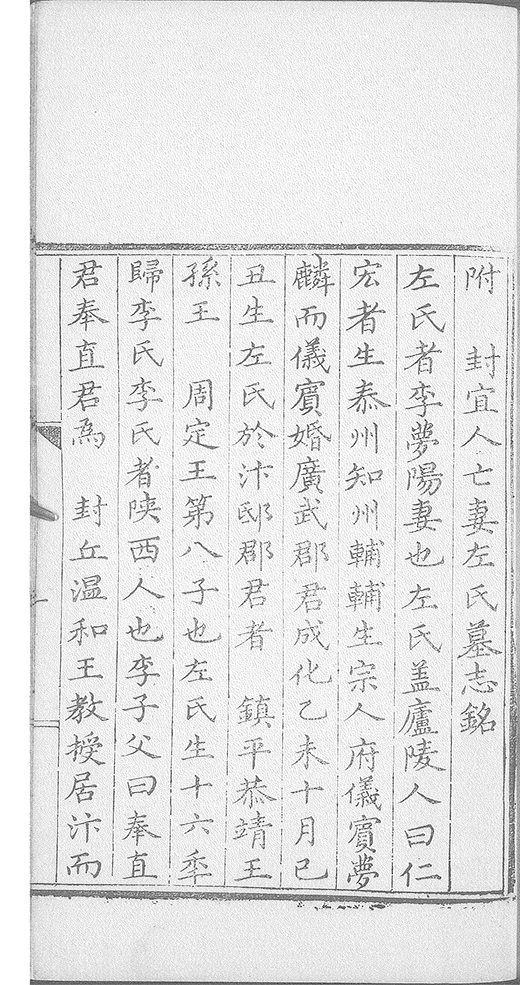 附　封宜人亡妻左氏墓志銘
左氏者李夢陽妻也左氏盖廬陵人曰仁
宏者生泰州知州輔輔生宗人府儀賓夢
麟而儀賓婚廣武郡君成化乙未十月己
丑生左氏於汴邸郡君者　鎮平恭靖王
孫王　周定王第八子也左氏生十六年
歸李氏李氏者陕西人也李子父曰奉直
君奉直君為　封丘温和王教授居汴而